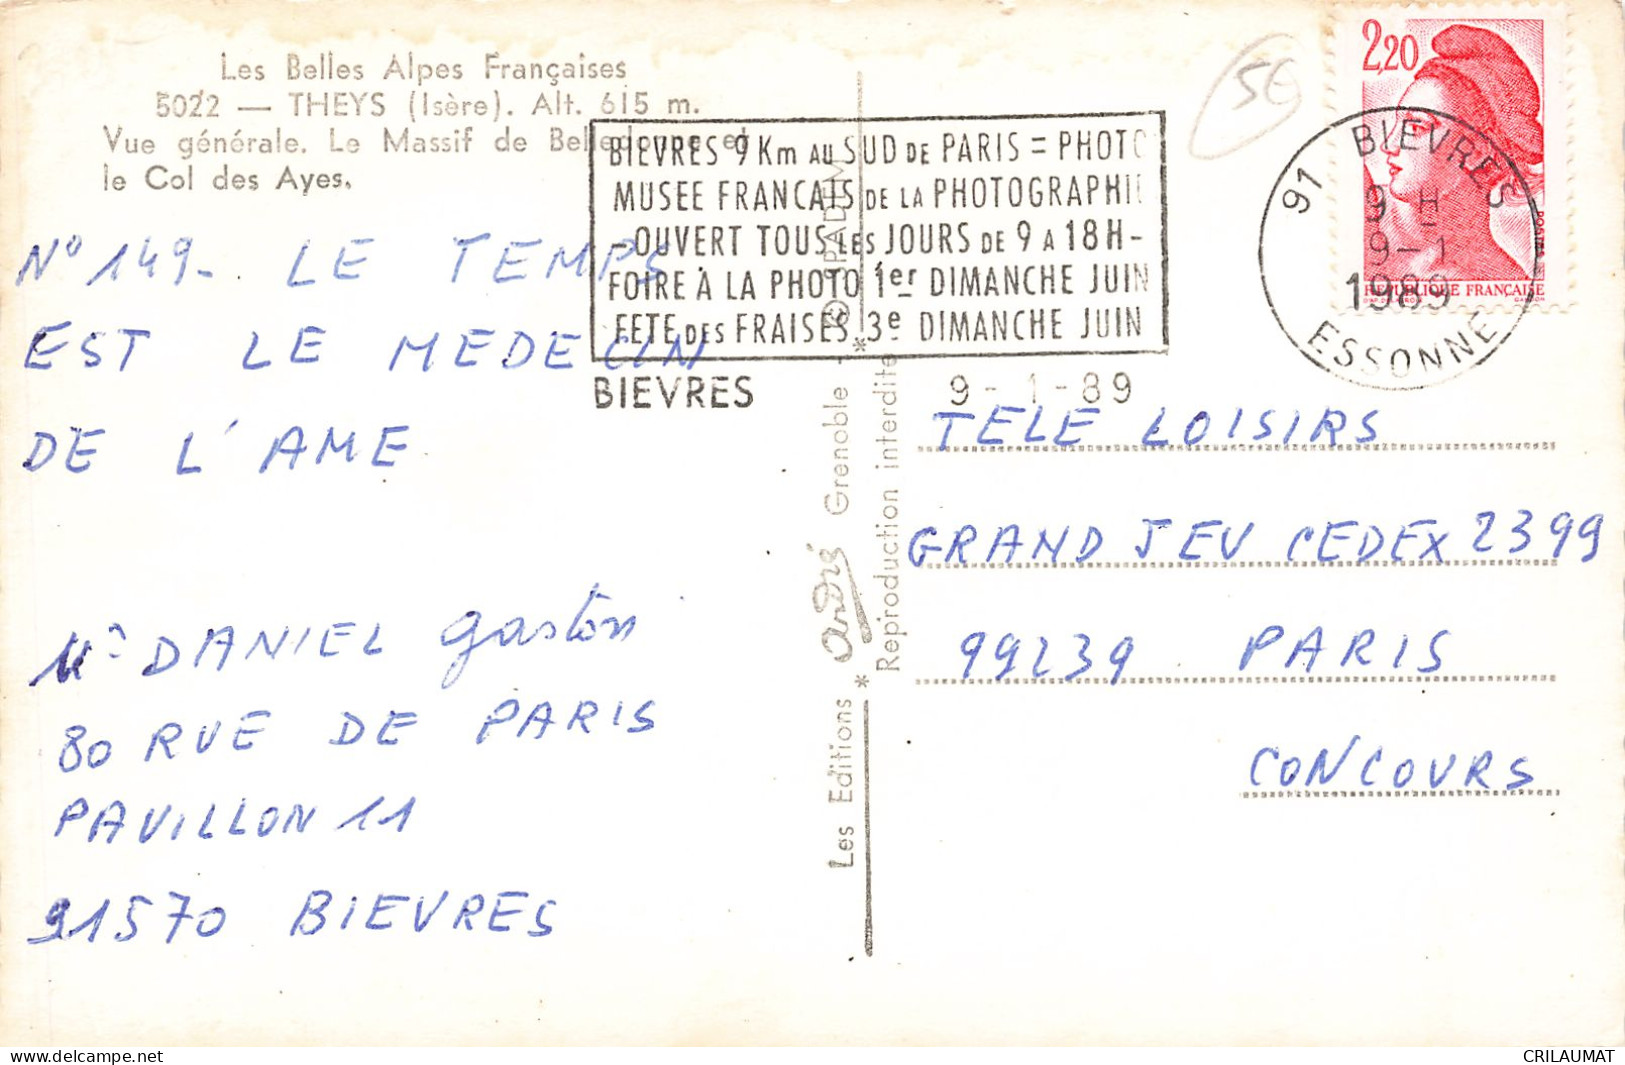 Les Belles Alpes Françaises
5022 — THEYS (Isère). Alt. 615 m.
Vue générale. Le Massif de Belledonne et
le Col des Ayes.
N° 149- LE TEMPS
EST LE MEDECIN
DE L'AME
Mr DANIEL gaston
80 RUE DE PARIS
PAVILLON 11
91570 BIEVRES
BIEVRES 9 Km AU SUD DE PARIS = PHOTO
MUSEE FRANCAIS DE LA PHOTOGRAPHIE
-OUVERT TOUS LES JOURS DE 9 A 18H-
FOIRE À LA PHOTO 1er DIMANCHE JUIN
FETE DES FRAISES 3e DIMANCHE JUIN
BIEVRES
9-1-89
Les Editions * André Grenoble * © SPADEM
Reproduction interdite
50
2,20
POSTES
RÉPUBLIQUE FRANÇAISE
91 BIEVRES
9 H
9-1
1989
ESSONNE
TELE LOISIRS
GRAND JEU CEDEX 2399
99239 PARIS
CONCOURS
https://www.delcampe.net
CRILAUMAT